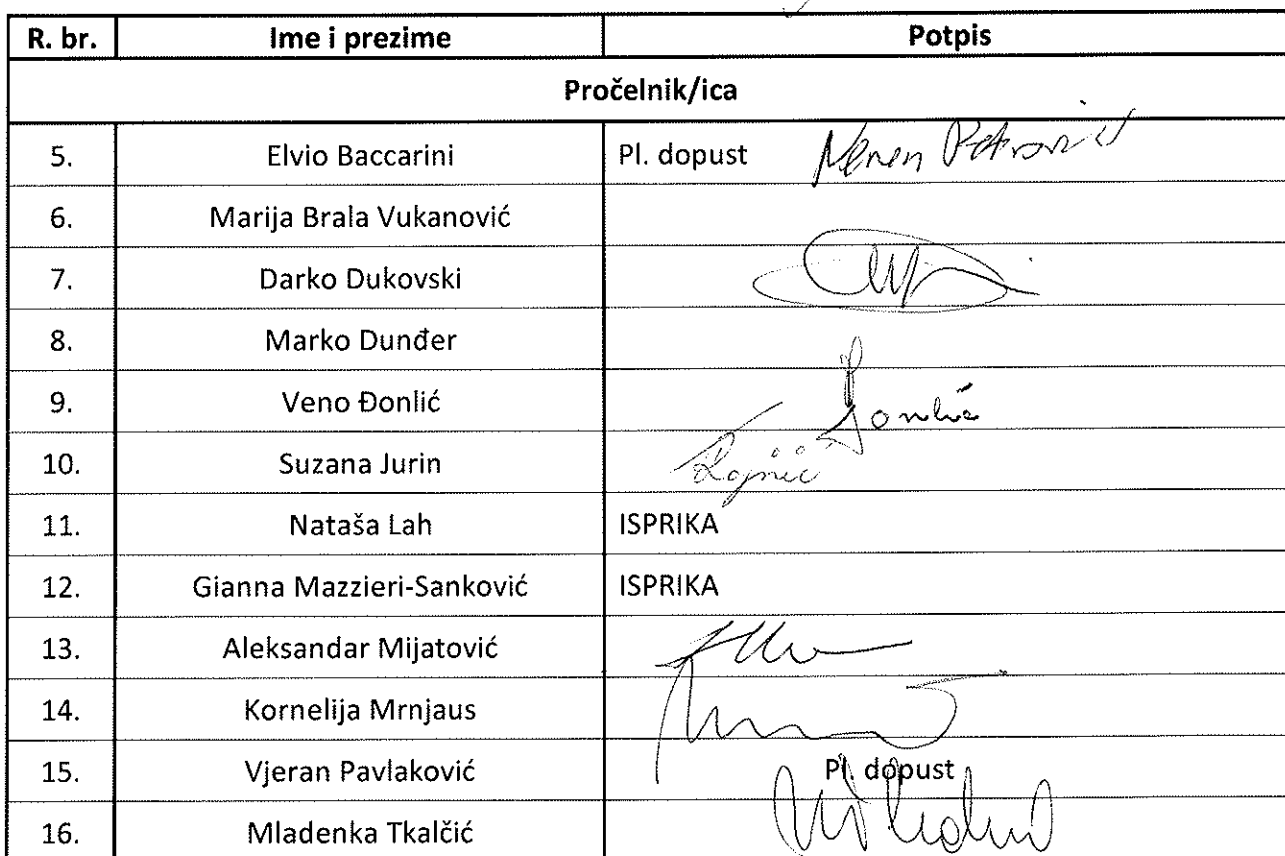 R. br. Ime i prezime Potpis
Pročelnik/ica
5. Elvio Baccarini Pl. dopust
6. Marija Brala Vukanović
7. Darko Dukovski
8. Marko Dunđer
9. Veno Đonlić Đonlić
10. Suzana Jurin
11. Nataša Lah ISPRIKA
12. Gianna Mazzieri-Sanković ISPRIKA
13. Aleksandar Mijatović
14. Kornelija Mrnjaus
15. Vjeran Pavlaković Pl. dopust
16. Mladenka Tkalčić